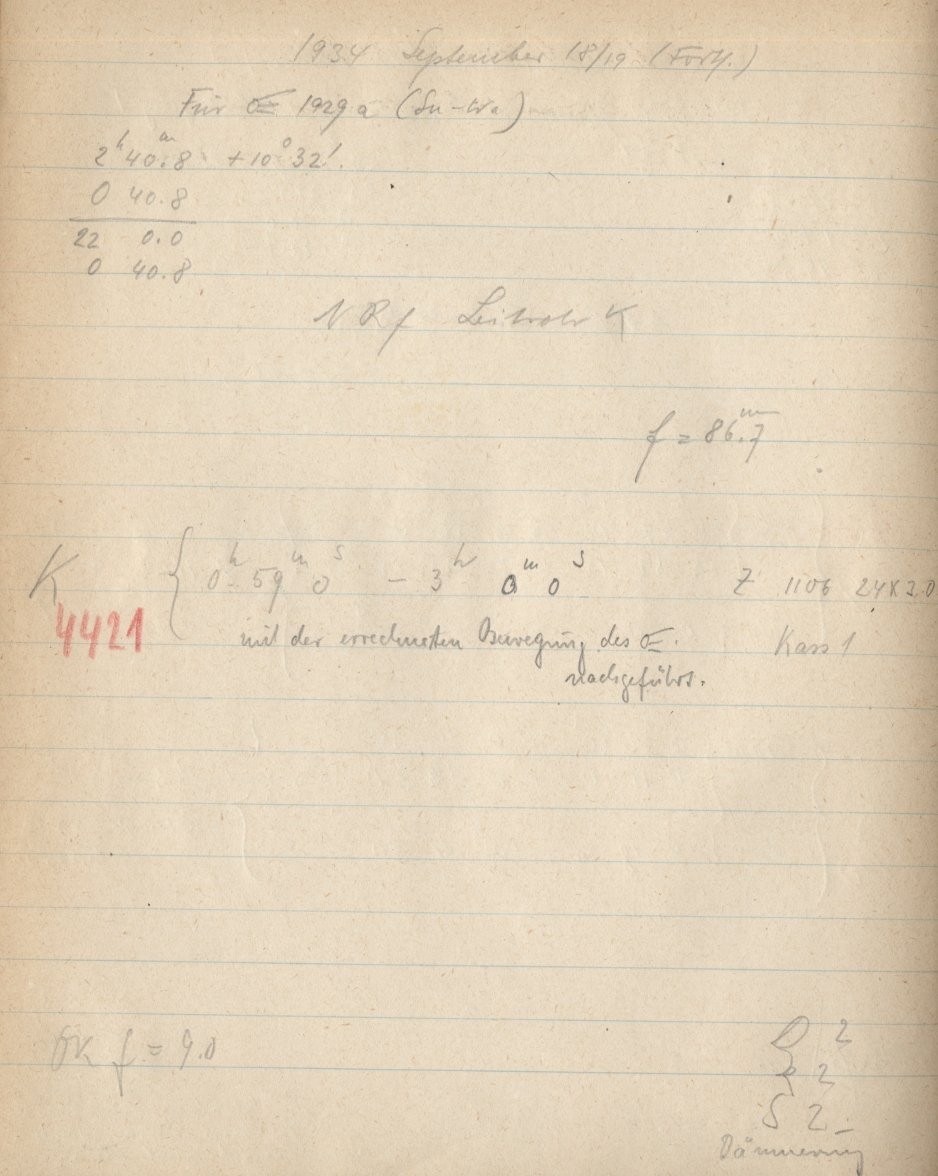 1934 September 18/19 (Forts.)
Für ☄ 1929a (Su-Wa)
2h 40.8m +10° 32'.
0 40.8
22 0.0
0 40.8
N Rf Leitrohr K
f = 86.7mm
K { 0h 59m 0s - 3h 0m 0s Z 1106 24x30
4421 mit der errechneten Bewegung des ☄. Kass 1
nachgeführt.
f = 9.0
2
2
S 2_
Dämmerung